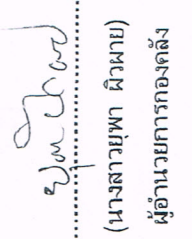 (นางสาวยุพา ผิวผาย)
ผู้อำนวยการกองคลัง